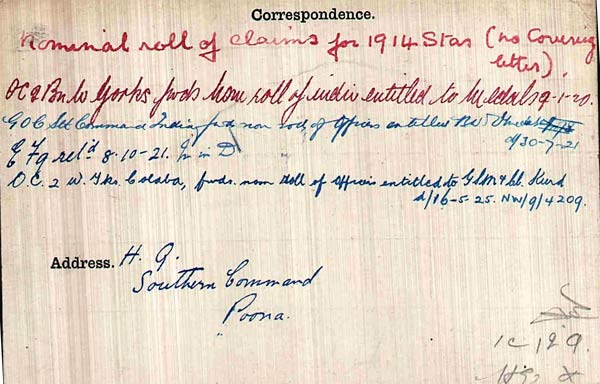 Correspondence.
Nominal roll of claims for 1914 Star (no Covering
letter).
OC 2 Bn W Yorks fwds Nom roll of indiv entitled to Medals 9-1-20.
G O C Sth Command India fwds nom roll of Officers entitled
d/30-7-21
E F 9 retd 8-10-21.
O.C. 2 W. Yks. Colaba, fwds. nom roll of Officers entitled to G.S.M. & Cl. Kurd
d/16-5-25. NW/9/4209.
Address. H. Q.
Southern Command
Poona.
1c 129